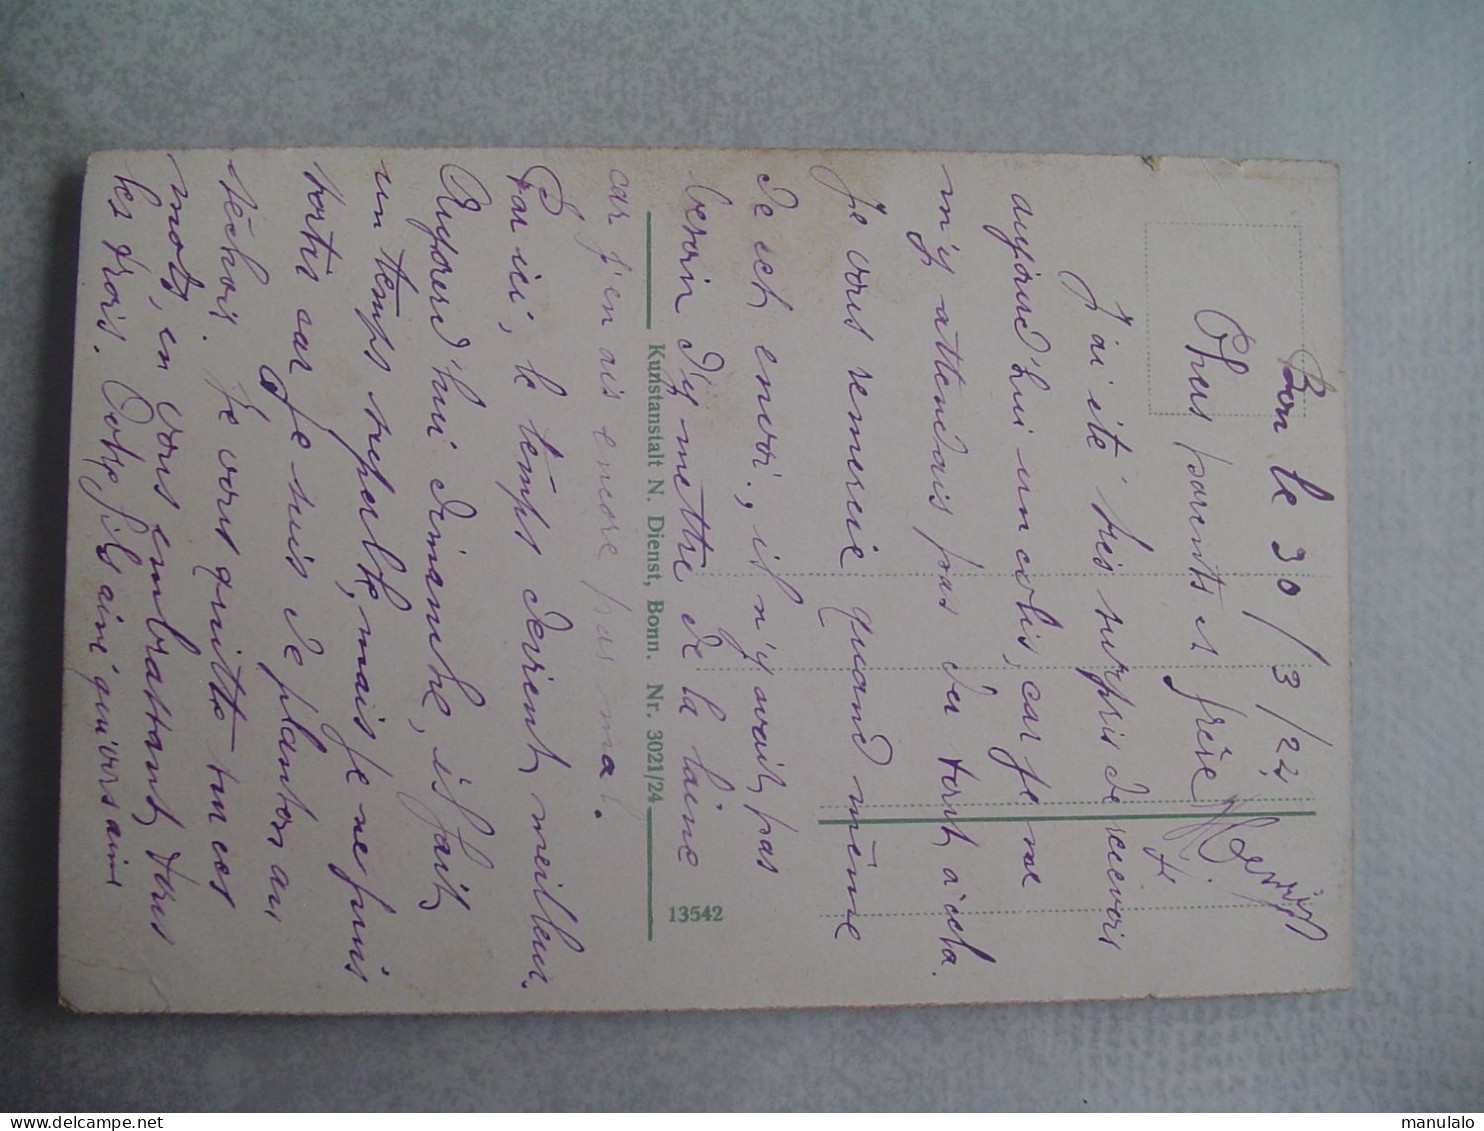 Bon le 30/3/24
Chers parents et frère
J'ai été très surpris de recevoir
aujourd'hui un colis, car je ne
m'y attendais pas du tout à cela.
Je vous remercie quand même
de cet envoi, il n'y avait pas
besoin d'y mettre de la laine
car j'en ais encore pas mal.
Kunstanstalt N. Dienst, Bonn. Nr. 3021/24
13542
Par ici, le temps devient meilleur.
Aujourd'hui dimanche, il fait
un temps superbe, mais je ne puis
sortir car je suis de planton au
séchoir. Je vous quitte sur ces
mots, en vous embrassant tous
les trois. Votre fils aimé qui vous aime
delcampe.net
manulalo